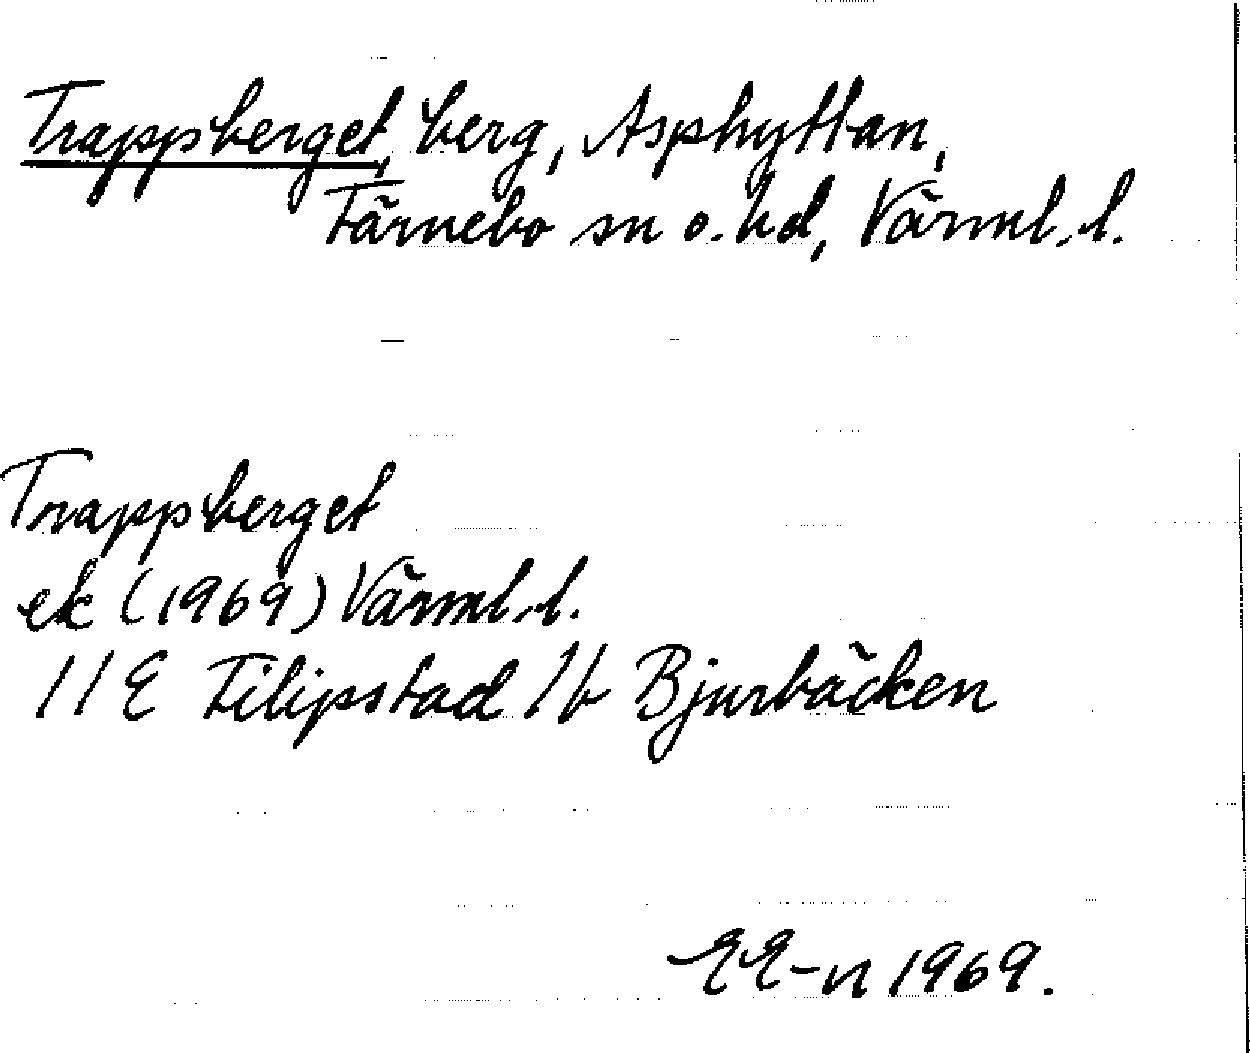 Trappsberget, berg, Asphyttan,
Färnebo sn o. hd, Värml. l.
Trappberget
ek (1969) Värml. l.
11E Filipstad 1b Bjurbäcken
EE-n 1969.